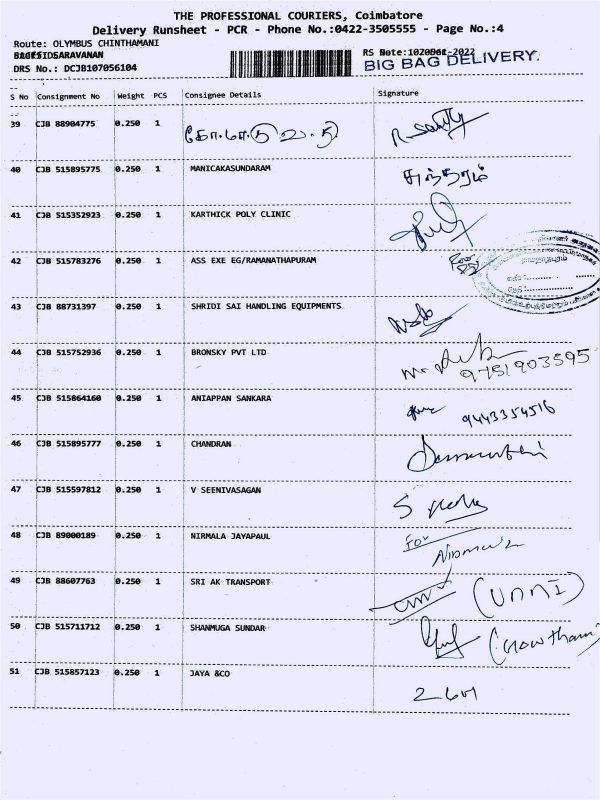 THE PROFESSIONAL COURIERS, Coimbatore
Delivery Runsheet - PCR - Phone No.:0422-3505555 - Page No.:4
Route: OLYMBUS CHINTHAMANI
SARAVANAN
DRS No.: DCJB107056104
RS
BIG BAG DELIVERY.
S No Consignment No Weight PCS Consignee Details Signature
39 CJB 88904775 0.250 1
40 CJB 515895775 0.250 1 MANICAKASUNDARAM சுந்தரம்
41 CJB 515352923 0.250 1 KARTHICK POLY CLINIC
42 CJB 515783276 0.250 1 ASS EXE EG/RAMANATHAPURAM
43 CJB 88731397 0.250 1 SHRIDI SAI HANDLING EQUIPMENTS
44 CJB 515752936 0.250 1 BRONSKY PVT LTD
9751903595
45 CJB 515864160 0.250 1 ANIAPPAN SANKARA 9443354516
46 CJB 515895777 0.250 1 CHANDRAN
47 CJB 515597812 0.250 1 V SEENIVASAGAN S
48 CJB 89000189 0.250 1 NIRMALA JAYAPAUL For
49 CJB 88607763 0.250 1 SRI AK TRANSPORT (UNNI)
50 CJB 515711712 0.250 1 SHANMUGA SUNDAR (Gowtham)
51 CJB 515857123 0.250 1 JAYA &CO